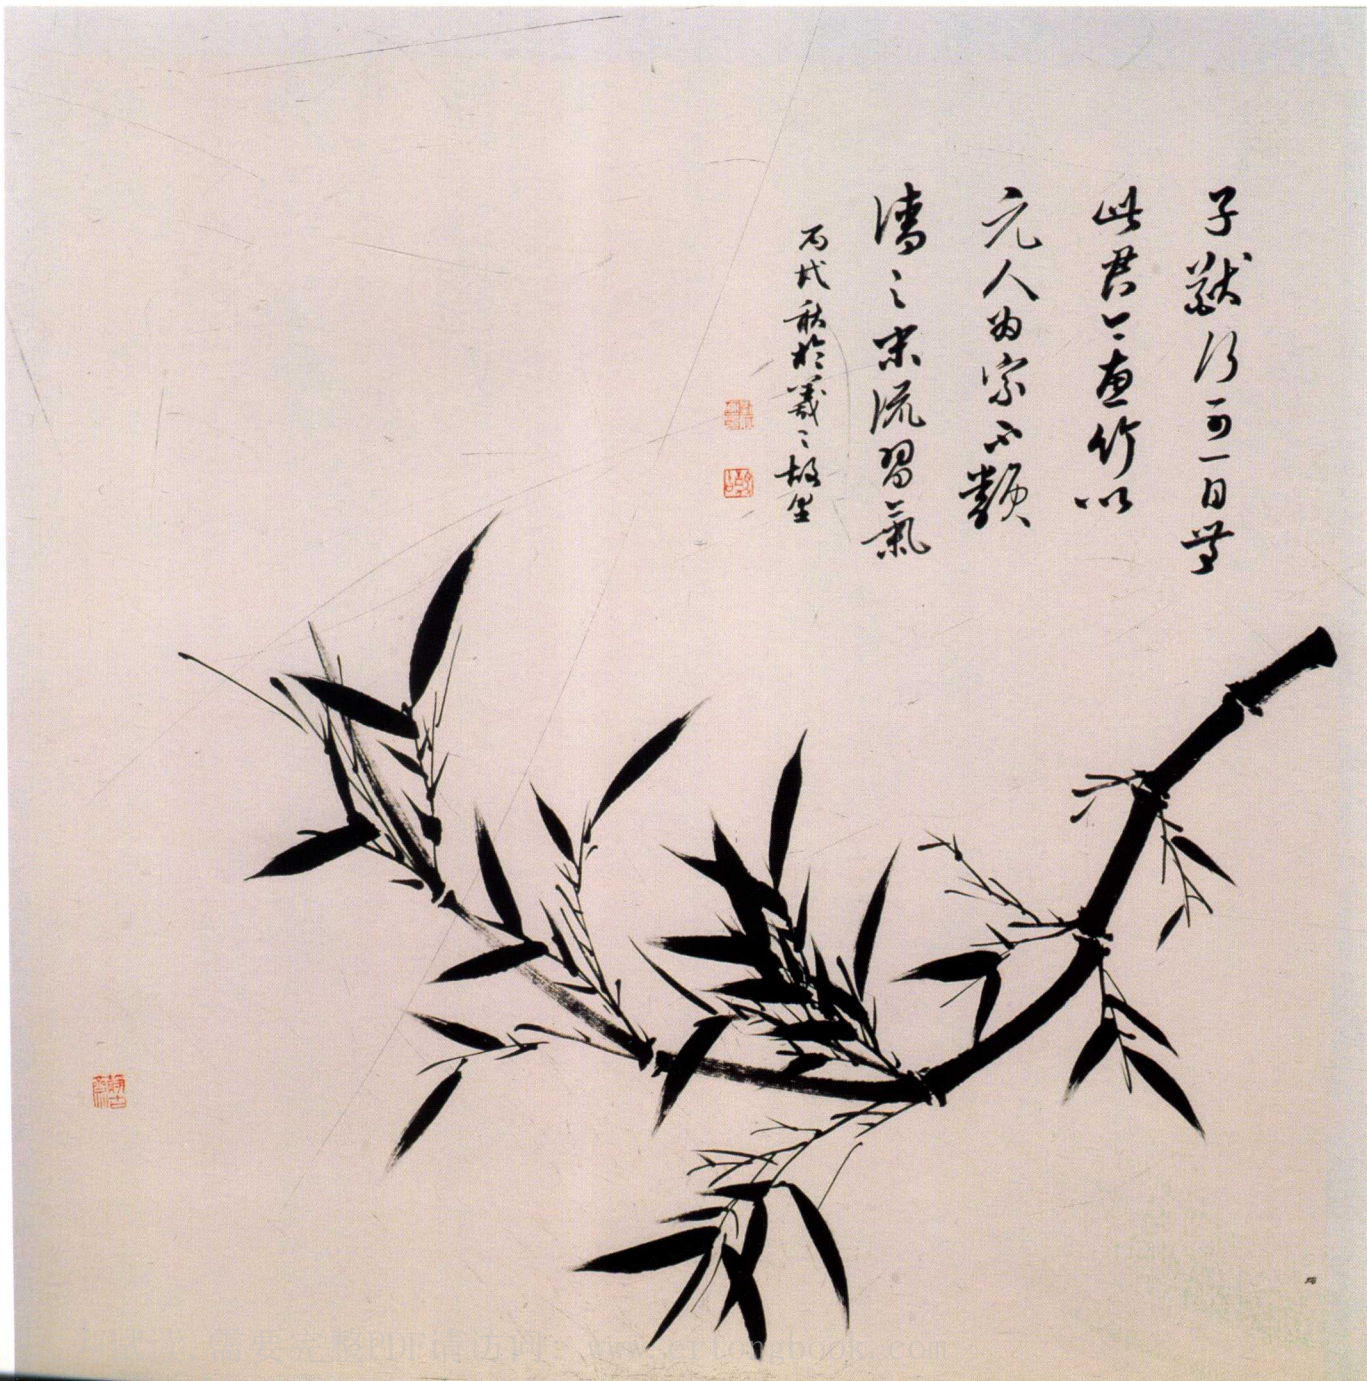 子猷何可一日無
此君今畫竹以
元人為宗不類
清之末流習氣
丙戌秋於羲之故里
需要完整PDF请访问: www.ertongbook.com